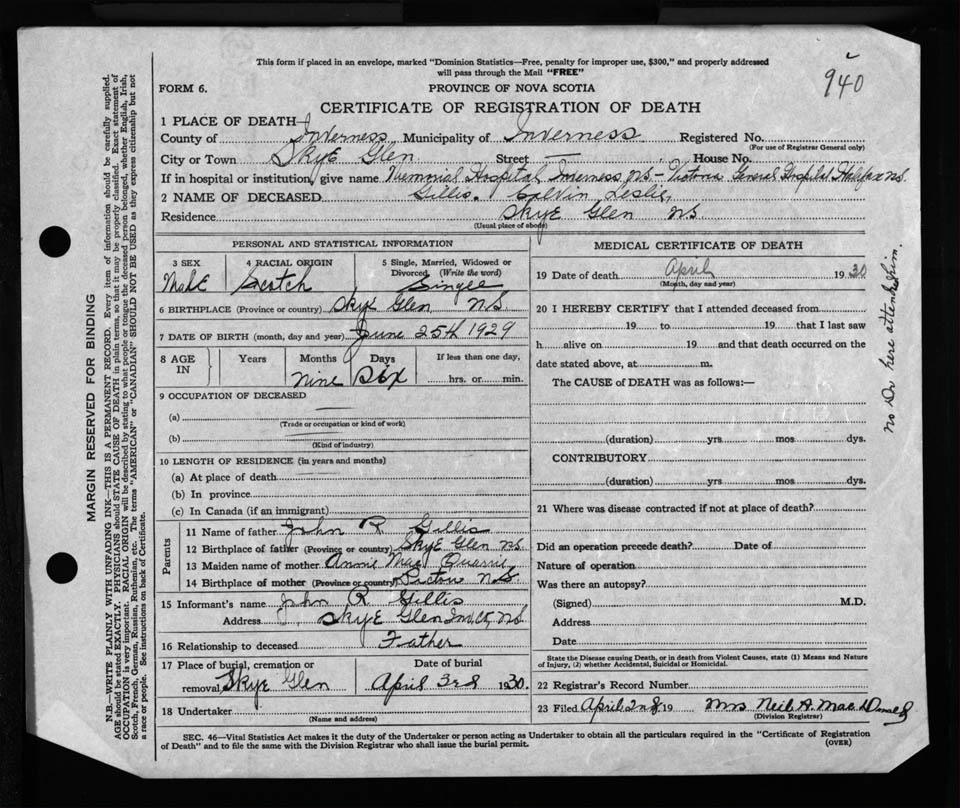 940
This form if placed in an envelope, marked "Dominion Statistics—Free, penalty for improper use, $300," and properly addressed
will pass through the Mail "FREE"
FORM 6.
PROVINCE OF NOVA SCOTIA
CERTIFICATE OF REGISTRATION OF DEATH
1 PLACE OF DEATH
County of Inverness Municipality of Inverness Registered No.
(For use of Registrar General only)
City or Town Skye Glen Street — House No.
If in hospital or institution, give name Memorial Hospital Inverness N.S.- Victoria General Hospital Halifax N.S.
2 NAME OF DECEASED Gillis. Calvin Leslie,
Residence Skye Glen NS
(Usual place of abode)
PERSONAL AND STATISTICAL INFORMATION
3 SEX 4 RACIAL ORIGIN 5 Single, Married, Widowed or Divorced (Write the word)
Male Scotch Single
6 BIRTHPLACE (Province or country) Skye Glen N.S.
7 DATE OF BIRTH (month, day and year) June 25th 1929
8 AGE IN Years Months Days If less than one day,
Nine Six hrs. or min.
9 OCCUPATION OF DECEASED
(a)
(Trade or occupation or kind of work)
(b)
(Kind of industry)
10 LENGTH OF RESIDENCE (in years and months)
(a) At place of death
(b) In province
(c) In Canada (if an immigrant)
Parents
11 Name of father John R Gillis
12 Birthplace of father (Province or country) Skye Glen N.S.
13 Maiden name of mother Annie Mac Quarrie
14 Birthplace of mother (Province or country) Pictou N.S.
15 Informant's name John R Gillis
Address Skye Glen Inv. Co. N.S.
16 Relationship to deceased Father
17 Place of burial, cremation or removal Skye Glen
Date of burial
April 3rd 1930.
18 Undertaker
(Name and address)
MEDICAL CERTIFICATE OF DEATH
19 Date of death April 1930
(Month, day and year)
20 I HEREBY CERTIFY that I attended deceased from
19 to 19 that I last saw
h alive on 19 and that death occurred on the
date stated above, at m.
The CAUSE of DEATH was as follows:—
(duration) yrs mos dys.
CONTRIBUTORY
(duration) yrs mos dys.
21 Where was disease contracted if not at place of death?
Did an operation precede death? Date of
Nature of operation
Was there an autopsy?
(Signed) M.D.
Address
Date
State the Disease causing Death, or in death from Violent Causes, state (1) Means and Nature
of Injury, (2) whether Accidental, Suicidal or Homicidal.
22 Registrar's Record Number
23 Filed April 2nd 19 Mrs Neil A. Mac Donald
(Division Registrar)
SEC. 46—Vital Statistics Act makes it duty of the Undertaker or person acting as Undertaker to obtain all the particulars required in the "Certificate of Registration
of Death" and to file the same with the Division Registrar who shall issue the burial permit.
(OVER)
no Dr here attended him.
MARGIN RESERVED FOR BINDING
N.B.—WRITE PLAINLY WITH UNFADING INK—THIS IS A PERMANENT RECORD. Every item of information should be carefully supplied.
AGE should be stated EXACTLY. PHYSICIANS should STATE CAUSE OF DEATH in plain terms, so that it may be properly classified. Exact statement of
OCCUPATION is very important. RACIAL ORIGIN will be described by stating to what people or tongue the deceased person belonged, whether English, Irish,
Scotch, French, German, Russian, Ruthenian, etc. The terms "AMERICAN" or "CANADIAN" SHOULD NOT BE USED as they express citizenship but not
a race or people. See instructions on back of Certificate.